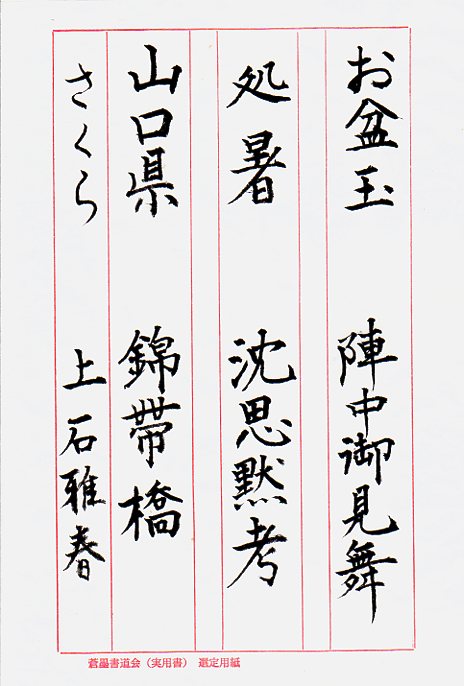 お盆玉　陣中御見舞
処暑　沈思黙考
山口県　錦帯橋
さくら　上石雅春
蒼墨書道会（実用書）　選定用紙